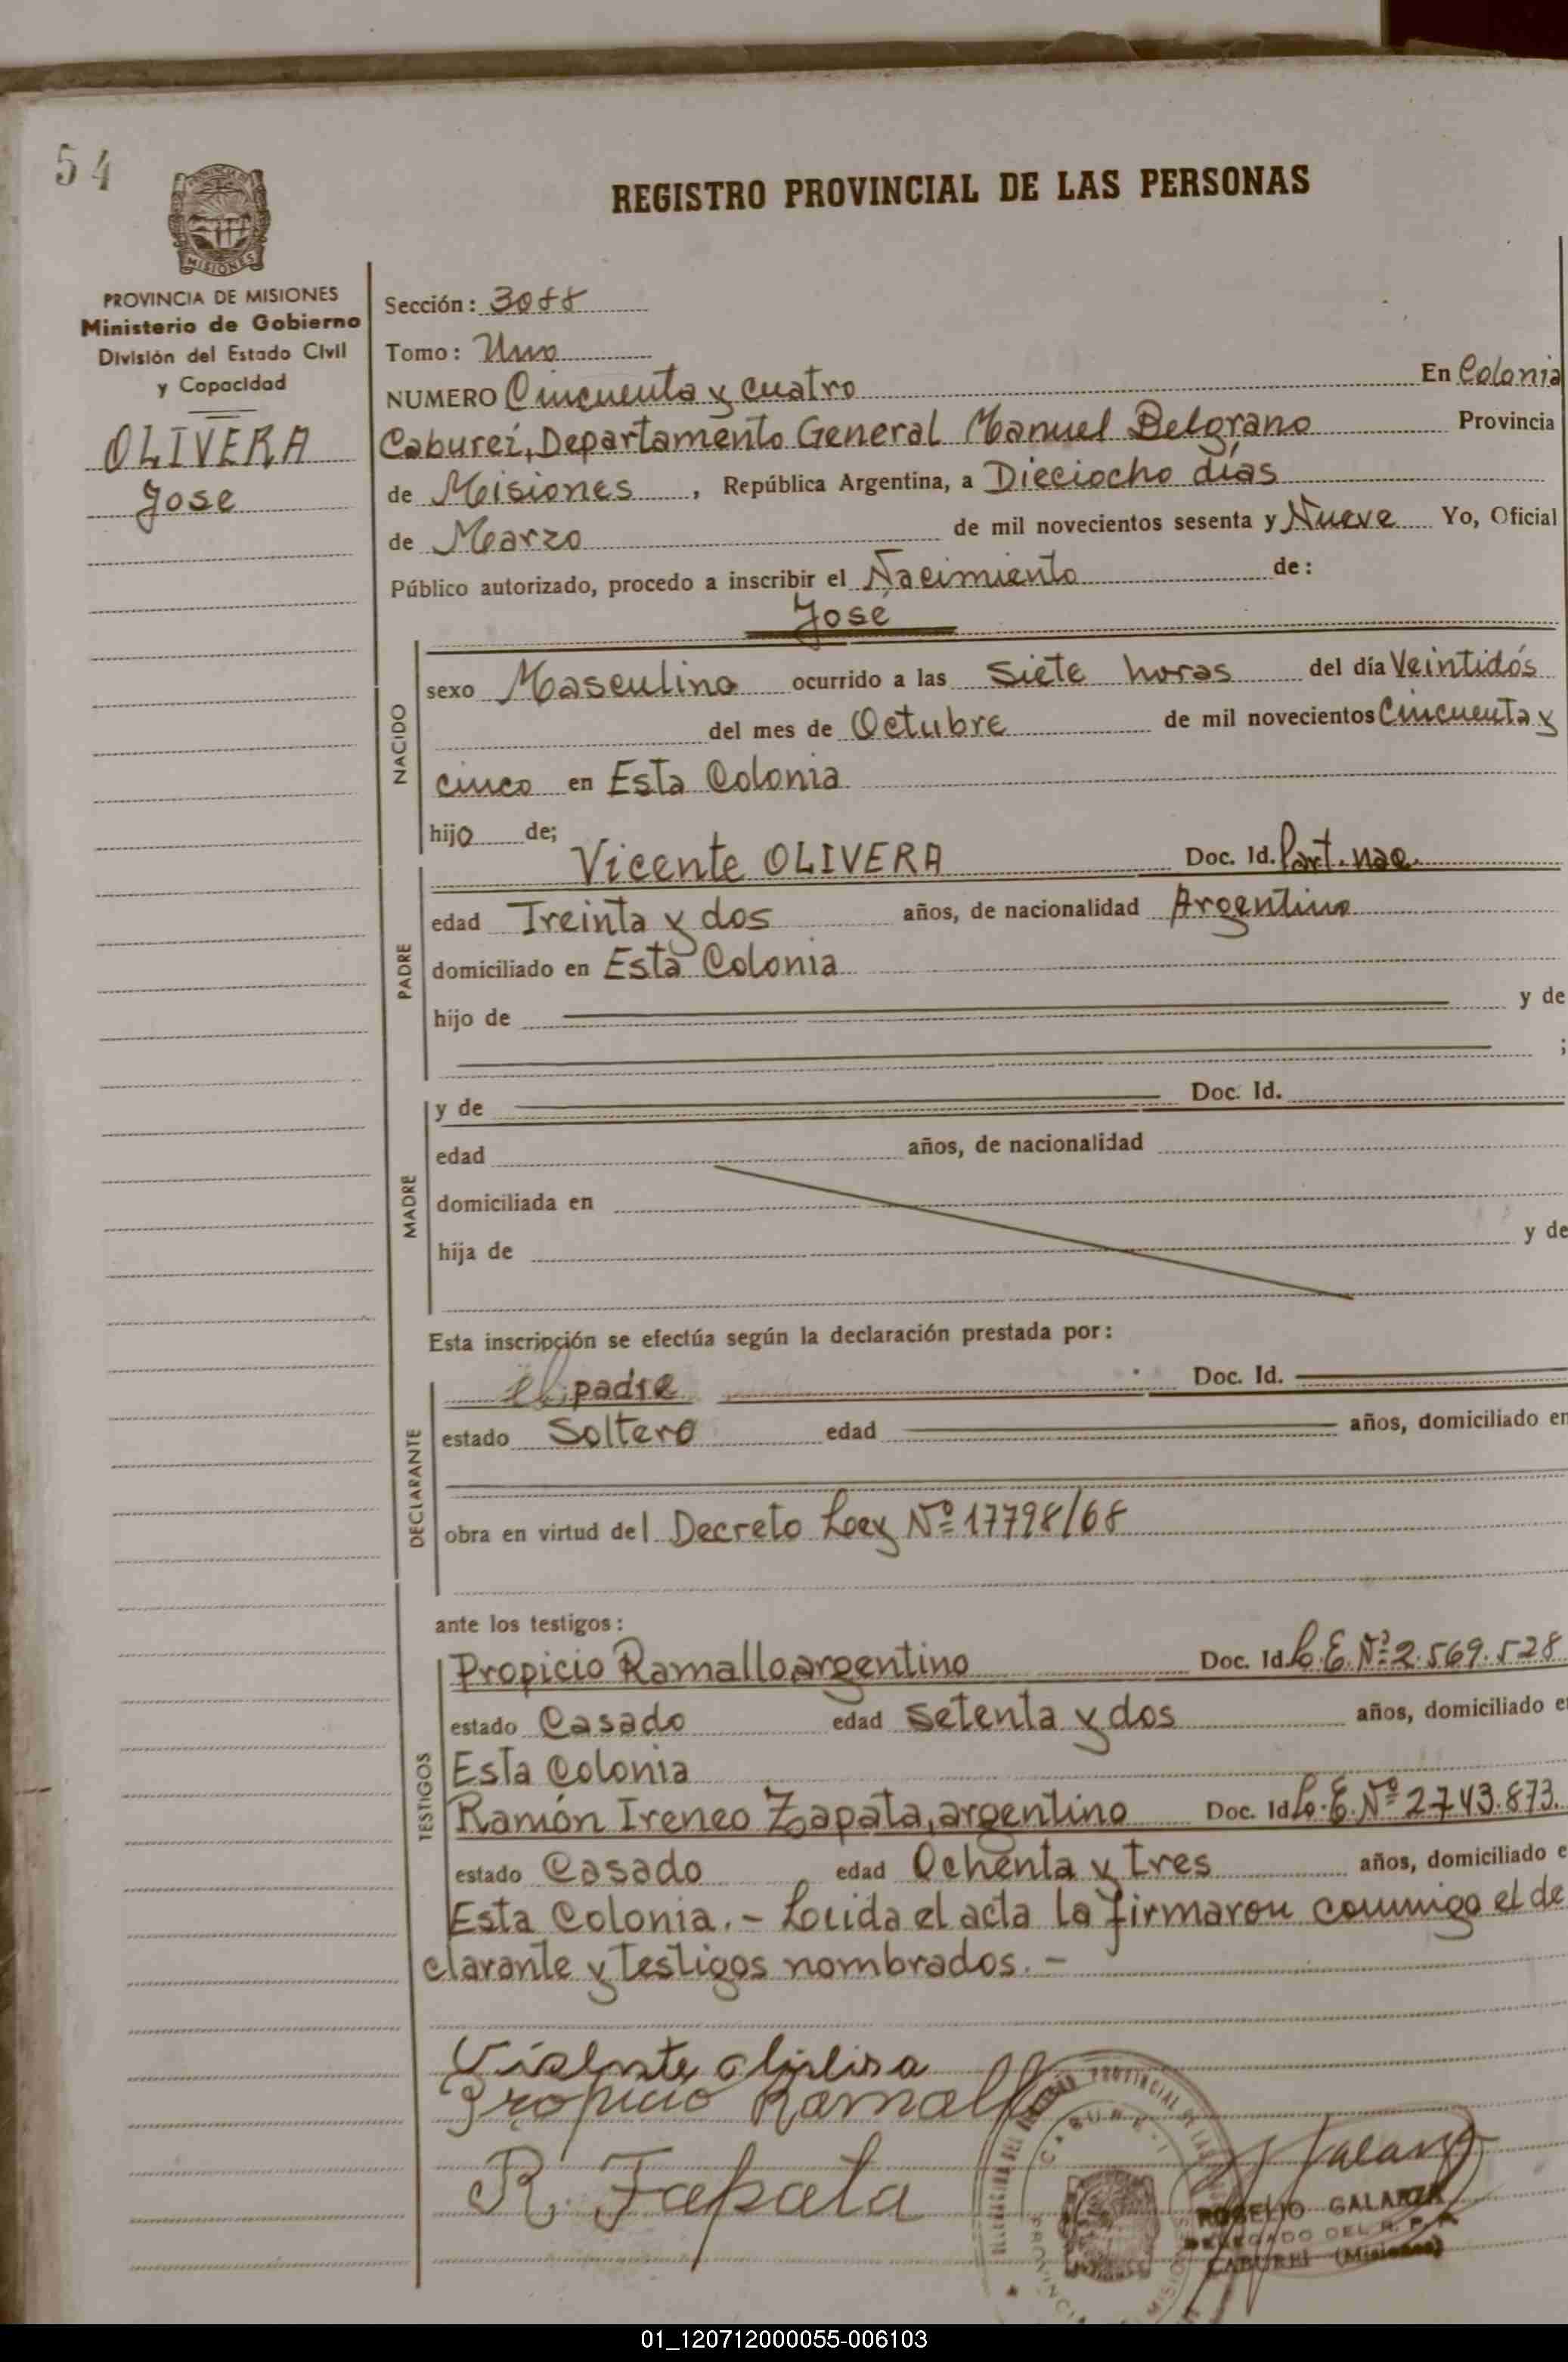 54
REGISTRO PROVINCIAL DE LAS PERSONAS
MISIONES
PROVINCIA DE MISIONES
Ministerio de Gobierno
División del Estado Civil
y Capacidad
OLIVERA
Jose
Sección: 3088
Tomo: Uno
NUMERO Cincuenta y cuatro En Colonia
Caburei, Departamento General Manuel Belgrano Provincia
de Misiones, República Argentina, a Dieciocho días
de Marzo de mil novecientos sesenta y Nueve Yo, Oficial
Público autorizado, procedo a inscribir el Nacimiento de:
José
NACIDO
sexo Masculino ocurrido a las Siete horas del día Veintidós
del mes de Octubre de mil novecientos Cincuenta y
cinco en Esta Colonia
hijo de;
PADRE
Vicente OLIVERA Doc. Id. Part. nac.
edad Treinta y dos años, de nacionalidad Argentino
domiciliado en Esta Colonia
hijo de y de
;
MADRE
y de Doc. Id.
edad años, de nacionalidad
domiciliada en
hija de y de
Esta inscripción se efectúa según la declaración prestada por:
DECLARANTE
el padre Doc. Id.
estado Soltero edad años, domiciliado en
obra en virtud del Decreto Ley Nº 17798/68
ante los testigos:
TESTIGOS
Propicio Ramallo, argentino Doc. Id. L.E. Nº 2.569.528
estado Casado edad Setenta y dos años, domiciliado e
Esta Colonia
Ramón Ireneo Zapata, argentino Doc. Id. L.E. Nº 2743.873.
estado Casado edad Ochenta y tres años, domiciliado e
Esta Colonia.- Leida el acta la firmaron conmigo el de
clarante y testigos nombrados.-
Propicio Ramallo
R. Zapata
CABURE-I
ROGELIO GALARZA
DELEGADO DEL R. P. P.
CABUREI (Misiones)
01_120712000055-006103